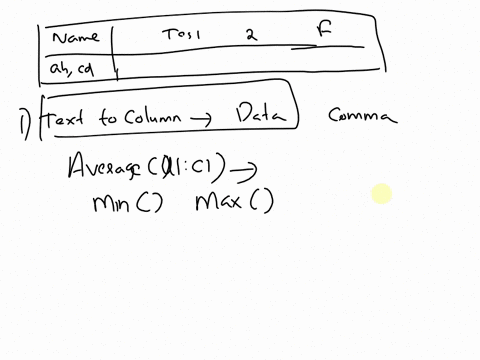 Name Tos1 2 F
ah, cd
1) Text to Column → Data Comma
Average(A1:C1) →
Min() Max()